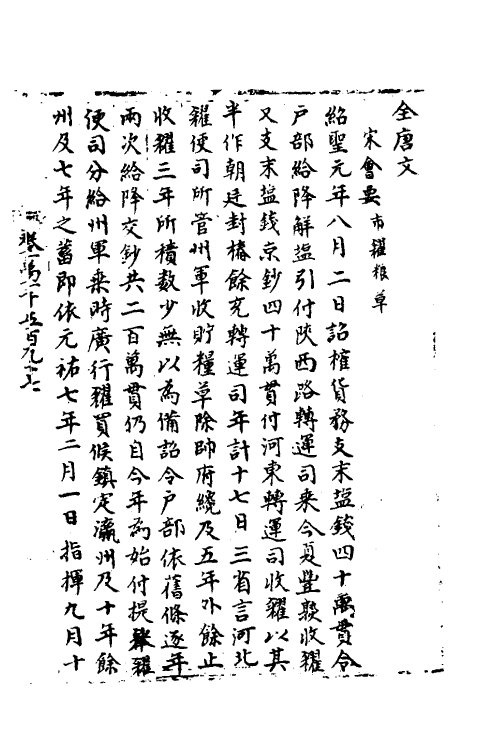 全唐文
宋會要 市糴糧草
紹聖元年八月二日詔榷貨務支末塩錢四十萬貫令
戶部給降解塩引付陝西路轉運司乘今夏豐熟收糴
又支末塩錢京鈔四十萬貫付河東轉運司收糴以其
半作朝廷封樁餘充轉運司年計十七日三省言河北
糴便司所管州軍收貯糧草除帥府纔及五年外餘止
收糴三年所積数少無以為備詔令戶部依舊條逐年
兩次給降交鈔共二百萬貫仍自今年為始付提舉糴
便司分給州軍乘時廣行糴買候鎮定瀛州及十年餘
州及七年之蓄即依元祐七年二月一日指揮九月十
卷一萬一千五百九十七